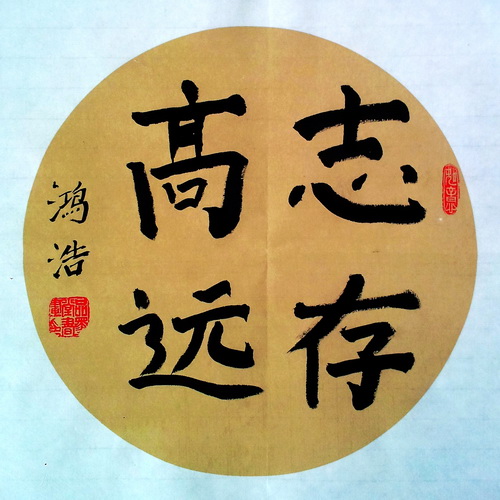 志存
高远
鸿浩